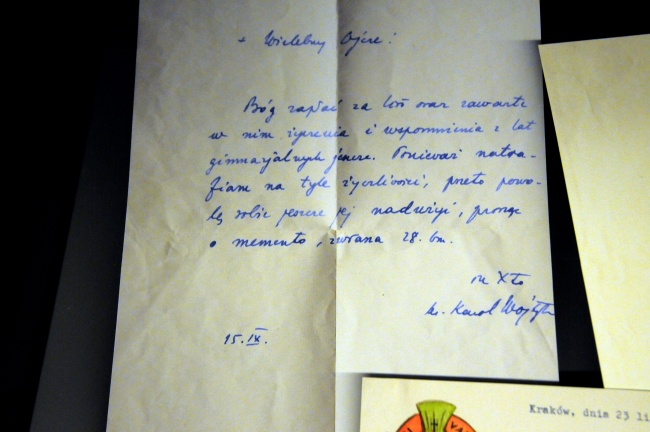 + Wielebny Ojcze!
Bóg zapłać za list oraz zawarte
w nim życzenia i wspomnienia z lat
gimnazjalnych jeszcze. Ponieważ natra-
fiam na tyle życzliwości, przeto pozwo-
lę sobie jeszcze jej nadużyć, prosząc
o memento, zwłaszcza 28. bm.
in Xto
ks. Karol Wojtyła
15. IX.
Kraków, dnia 23 li